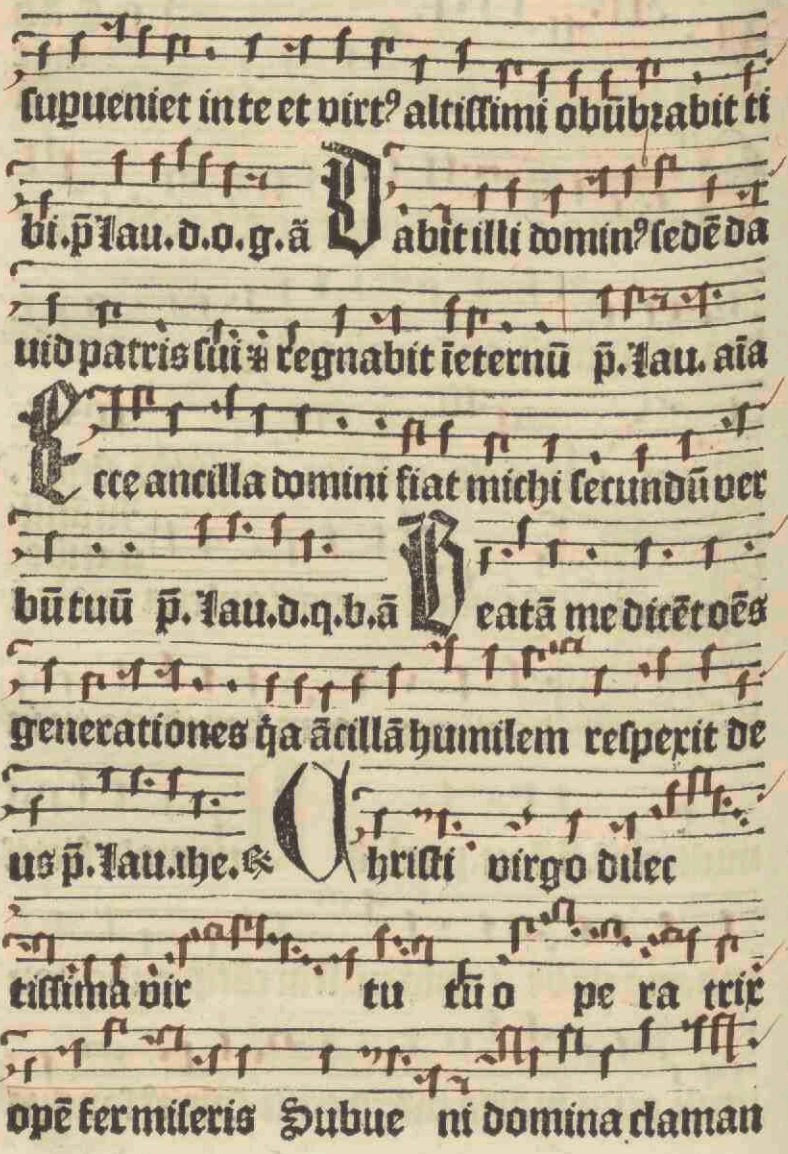 suꝑueniet in te et virtꝰ altissimi obūbrabit ti
bi. p̄. Lau. d. o. g. ā Dabit illi dominꝰ sedē da
uid patris sui ⁊ regnabit īeternū p̄. Lau. aīa
Ecce ancilla domini fiat michi secundū ver
bū tuū p̄. Lau. d. q. b. ā Beatā me dicēt oēs
generationes q̇a ācillā humilem respexit de
us p̄. Lau. ihe. ℞ Christi virgo dilec
tissima vir tu tū o pe ra trix
opē fer miseris Subue ni domina claman